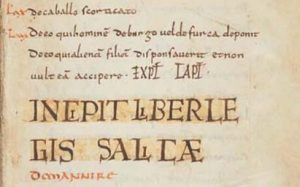 LXX De caballo scorticato
LXXI De eo qui hominē de bargo vel de furca deponit
De eo qui alienā filiā disponsaverit et non
vult eā accipere. EXPƚ CAPƚ
INCIPIT LIBER LE
GIS SALICÆ
DE MANNIRE